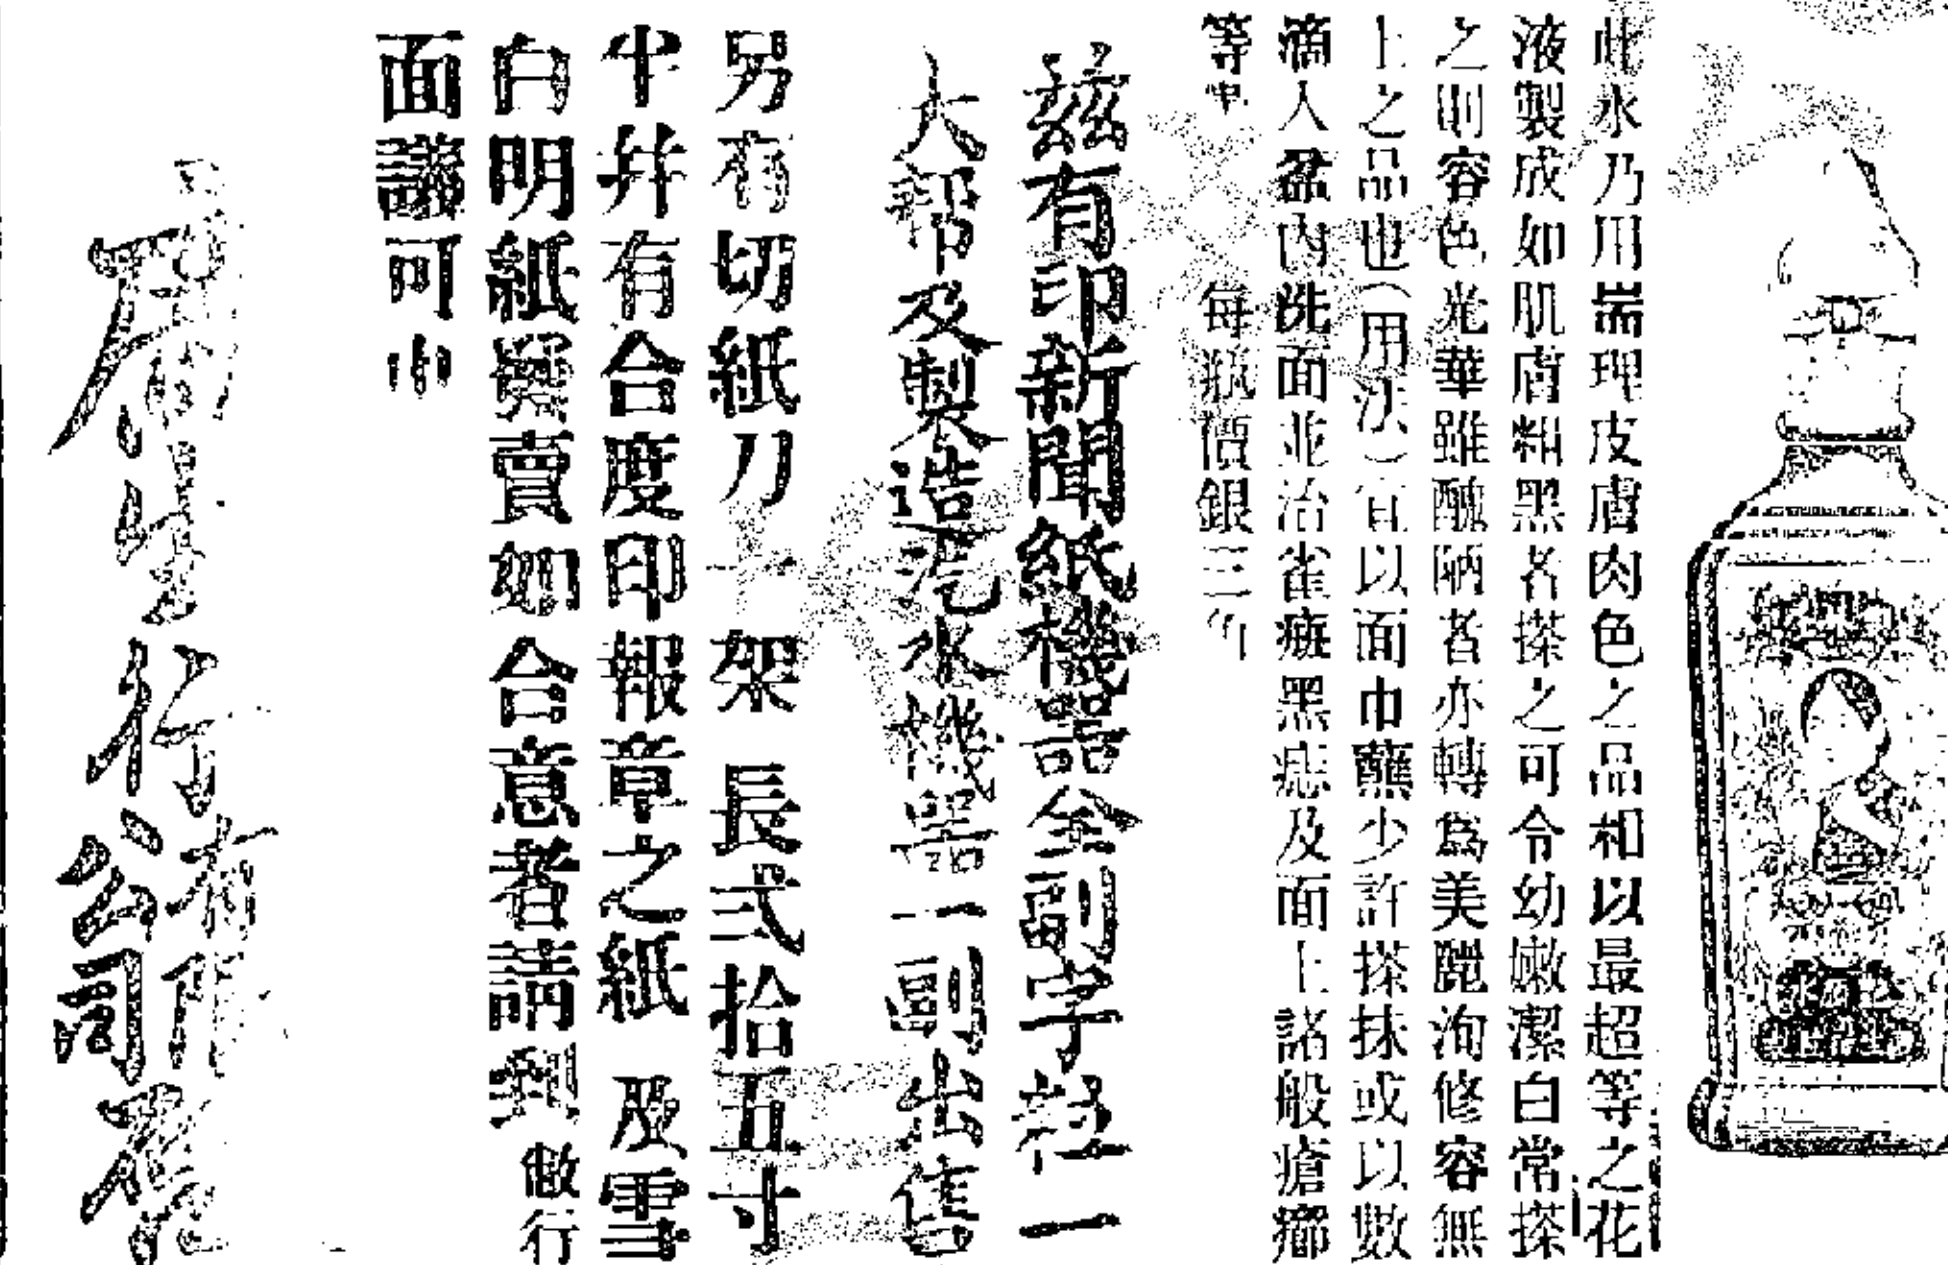 此水乃用耑理皮膚肉色之品和以最超等之花
液製成如肌膚粗黑者搽之可令幼嫩潔白常搽
之則容色光華雖醜陋者亦轉爲美麗洵修容無
上之品也（用法）宜以面巾蘸少許搽抹或以數
滴入盆內洗面並治雀癍黑痣及面上諸般瘡癤
等患 每瓶價銀三角
茲有印新聞紙機器全副字粒一
大幫及製造汽水機器一副出售
另有切紙刀一架 長弍拾五寸
半并有合度印報章之紙 及雪
白明紙發賣如合意者請到敝行
面議可也
廣生行有限公司啓